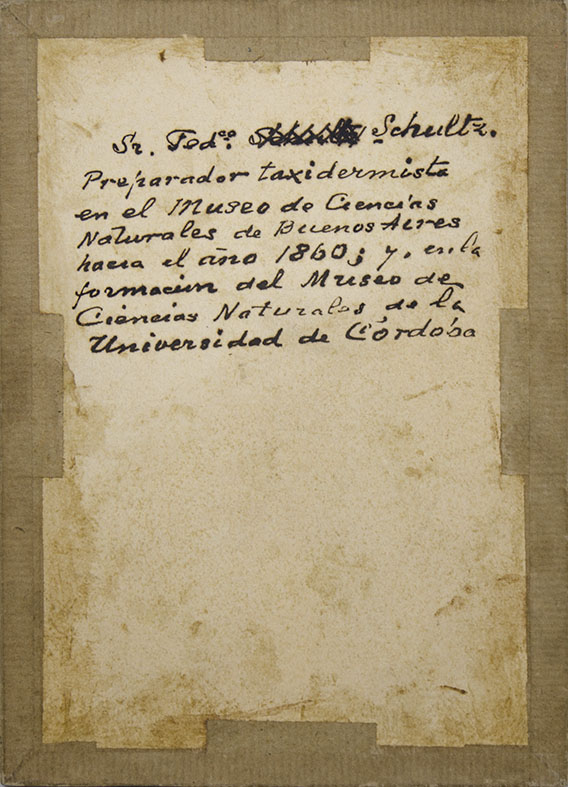 Sr. Fedco. Schultz.
Preparador taxidermista
en el Museo de Ciencias
Naturales de Buenos Aires
hacia el año 1860; y, en la
formacion del Museo de
Ciencias Naturales de la
Universidad de Córdoba